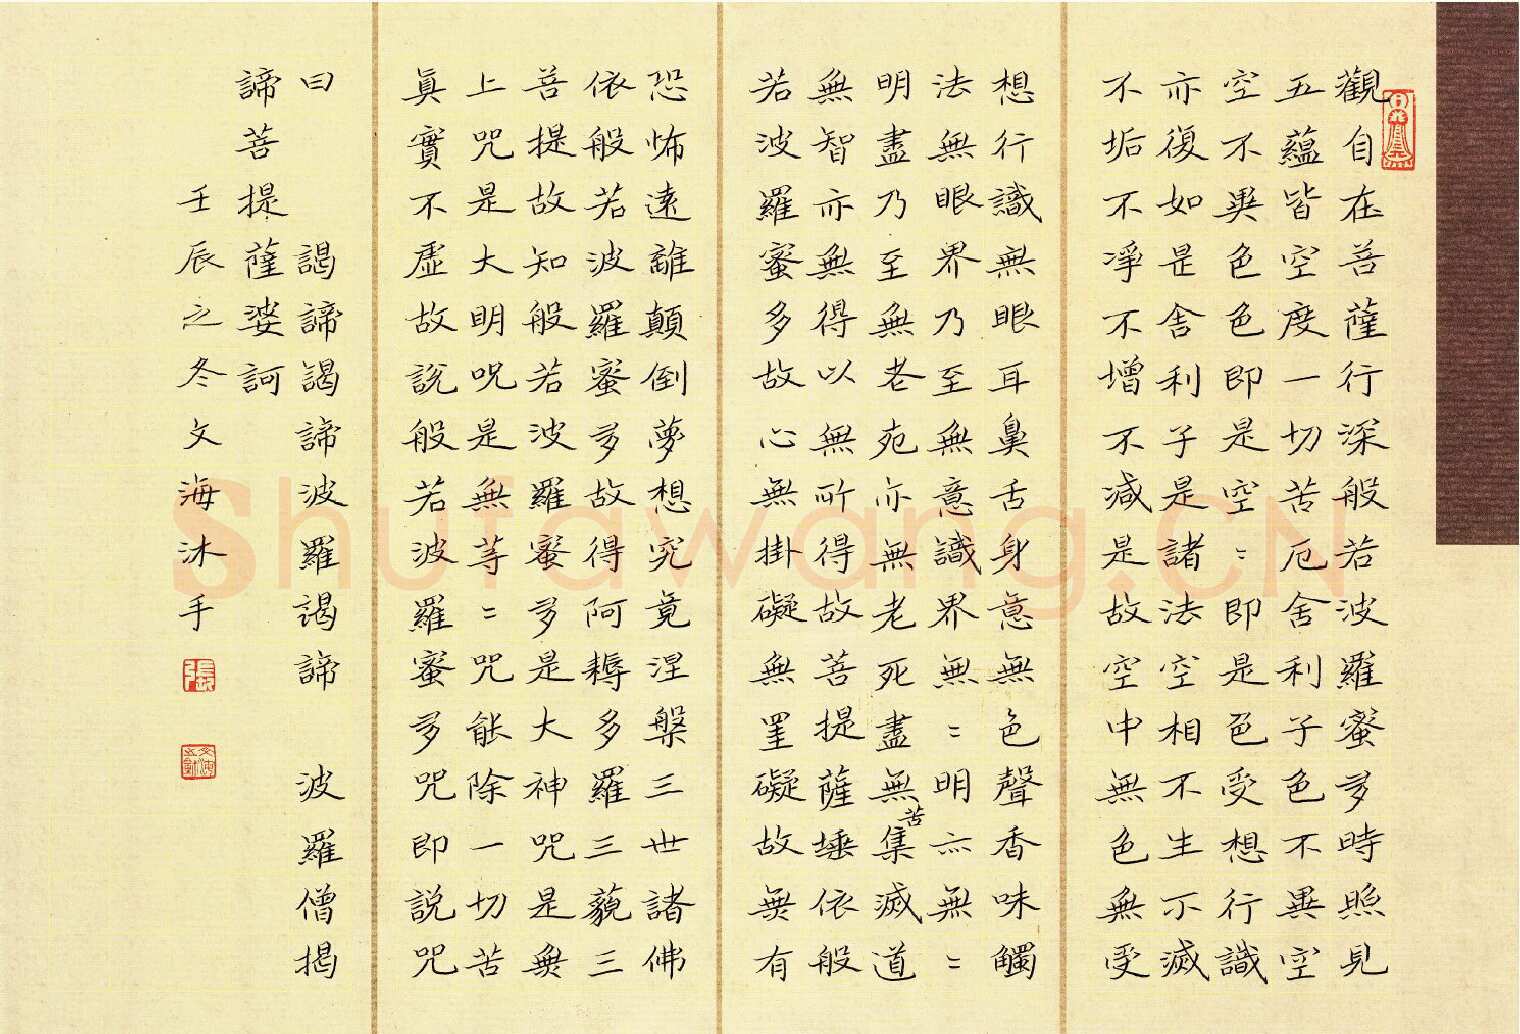 觀自在菩薩行深般若波羅蜜多時照見
五蘊皆空度一切苦厄舍利子色不異空
空不異色色即是空〻即是色受想行識
亦復如是舍利子是諸法空相不生不滅
不垢不淨不增不減是故空中無色無受
想行識無眼耳鼻舌身意無色聲香味觸
法無眼界乃至無意識界無〻明亦無〻
明盡乃至無老死亦無老死盡無苦集滅道
無智亦無得以無所得故菩提薩埵依般
若波羅蜜多故心無掛礙無罣礙故無有
恐怖遠離顛倒夢想究竟涅槃三世諸佛
依般若波羅蜜多故得阿耨多羅三藐三
菩提故知般若波羅蜜多是大神咒是無
上咒是大明咒是無等〻咒能除一切苦
真實不虛故說般若波羅蜜多咒即說咒
曰 謁諦謁諦波羅謁諦 波羅僧揭
諦菩提薩婆訶
壬辰之冬文海沐手
Shufawang.CN